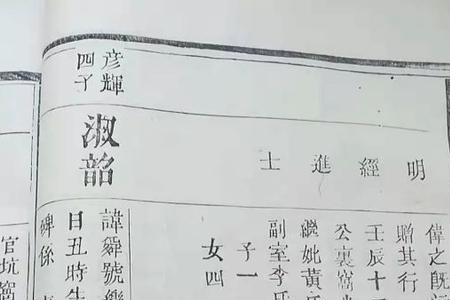 明經進士
偉之既
贈其行
壬辰十
公裏窩
繼妣黃
副室李氏
子一
女四
彥輝
四子
淑韶
諱舜號
日丑時生
碑係
官坑窩